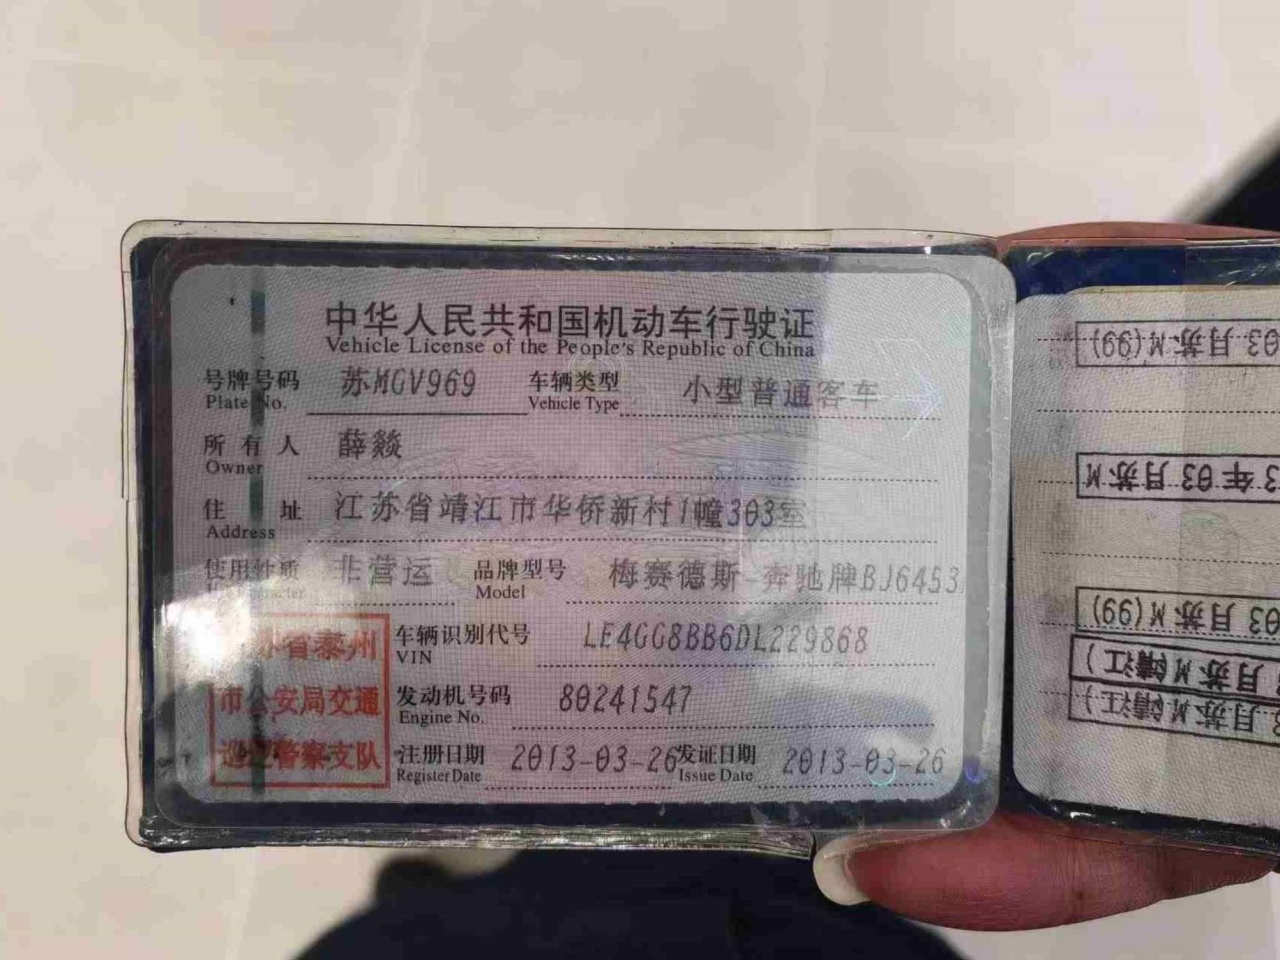 中华人民共和国机动车行驶证
Vehicle License of the People's Republic of China
号牌号码 苏MGV969 车辆类型 小型普通客车
Plate No. Vehicle Type
所有人 薛燚
Owner
住址 江苏省靖江市华侨新村1幢303室
Address
使用性质 非营运 品牌型号 梅赛德斯-奔驰牌BJ6453
Character Model
苏省泰州
市公安局交通
巡逻警察支队
车辆识别代号 LE4GG8BB6DL229868
VIN
发动机号码 80241547
Engine No.
注册日期 2013-03-26 发证日期 2013-03-26
Register Date Issue Date
03月苏M(99)
3年03月苏M
03月苏M(99)
月苏M(靖江)
月苏M(靖江)